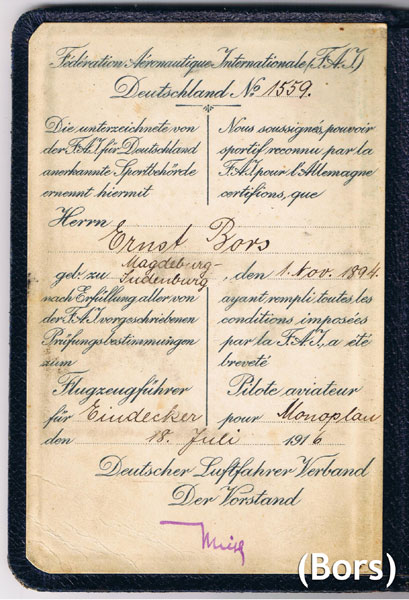 Fédération Aéronautique Internationale (F.A.I.)
Deutschland No 1559.
Die unterzeichnete von
der F.A.I für Deutschland
anerkannte Sportbehörde
ernennt hiermit
Nous soussignés, pouvoir
sportif reconnu par la
F.A.I pour l'Allemagne
certifions, que
Herrn
Ernst Bors
Magdeburg-
geb. zu Sudenburg, den 1. Nov. 1894.
nach Erfüllung aller von
der F.A.I vorgeschriebenen
Prüfungsbestimmungen
zum
Flugzeugführer
für Eindecker
ayant rempli toutes les
conditions imposées
par la F.A.I, a été
breveté
Pilote aviateur
pour Monoplan
den 18. Juli 1916
Deutscher Luftfahrer Verband
Der Vorstand
(Bors)